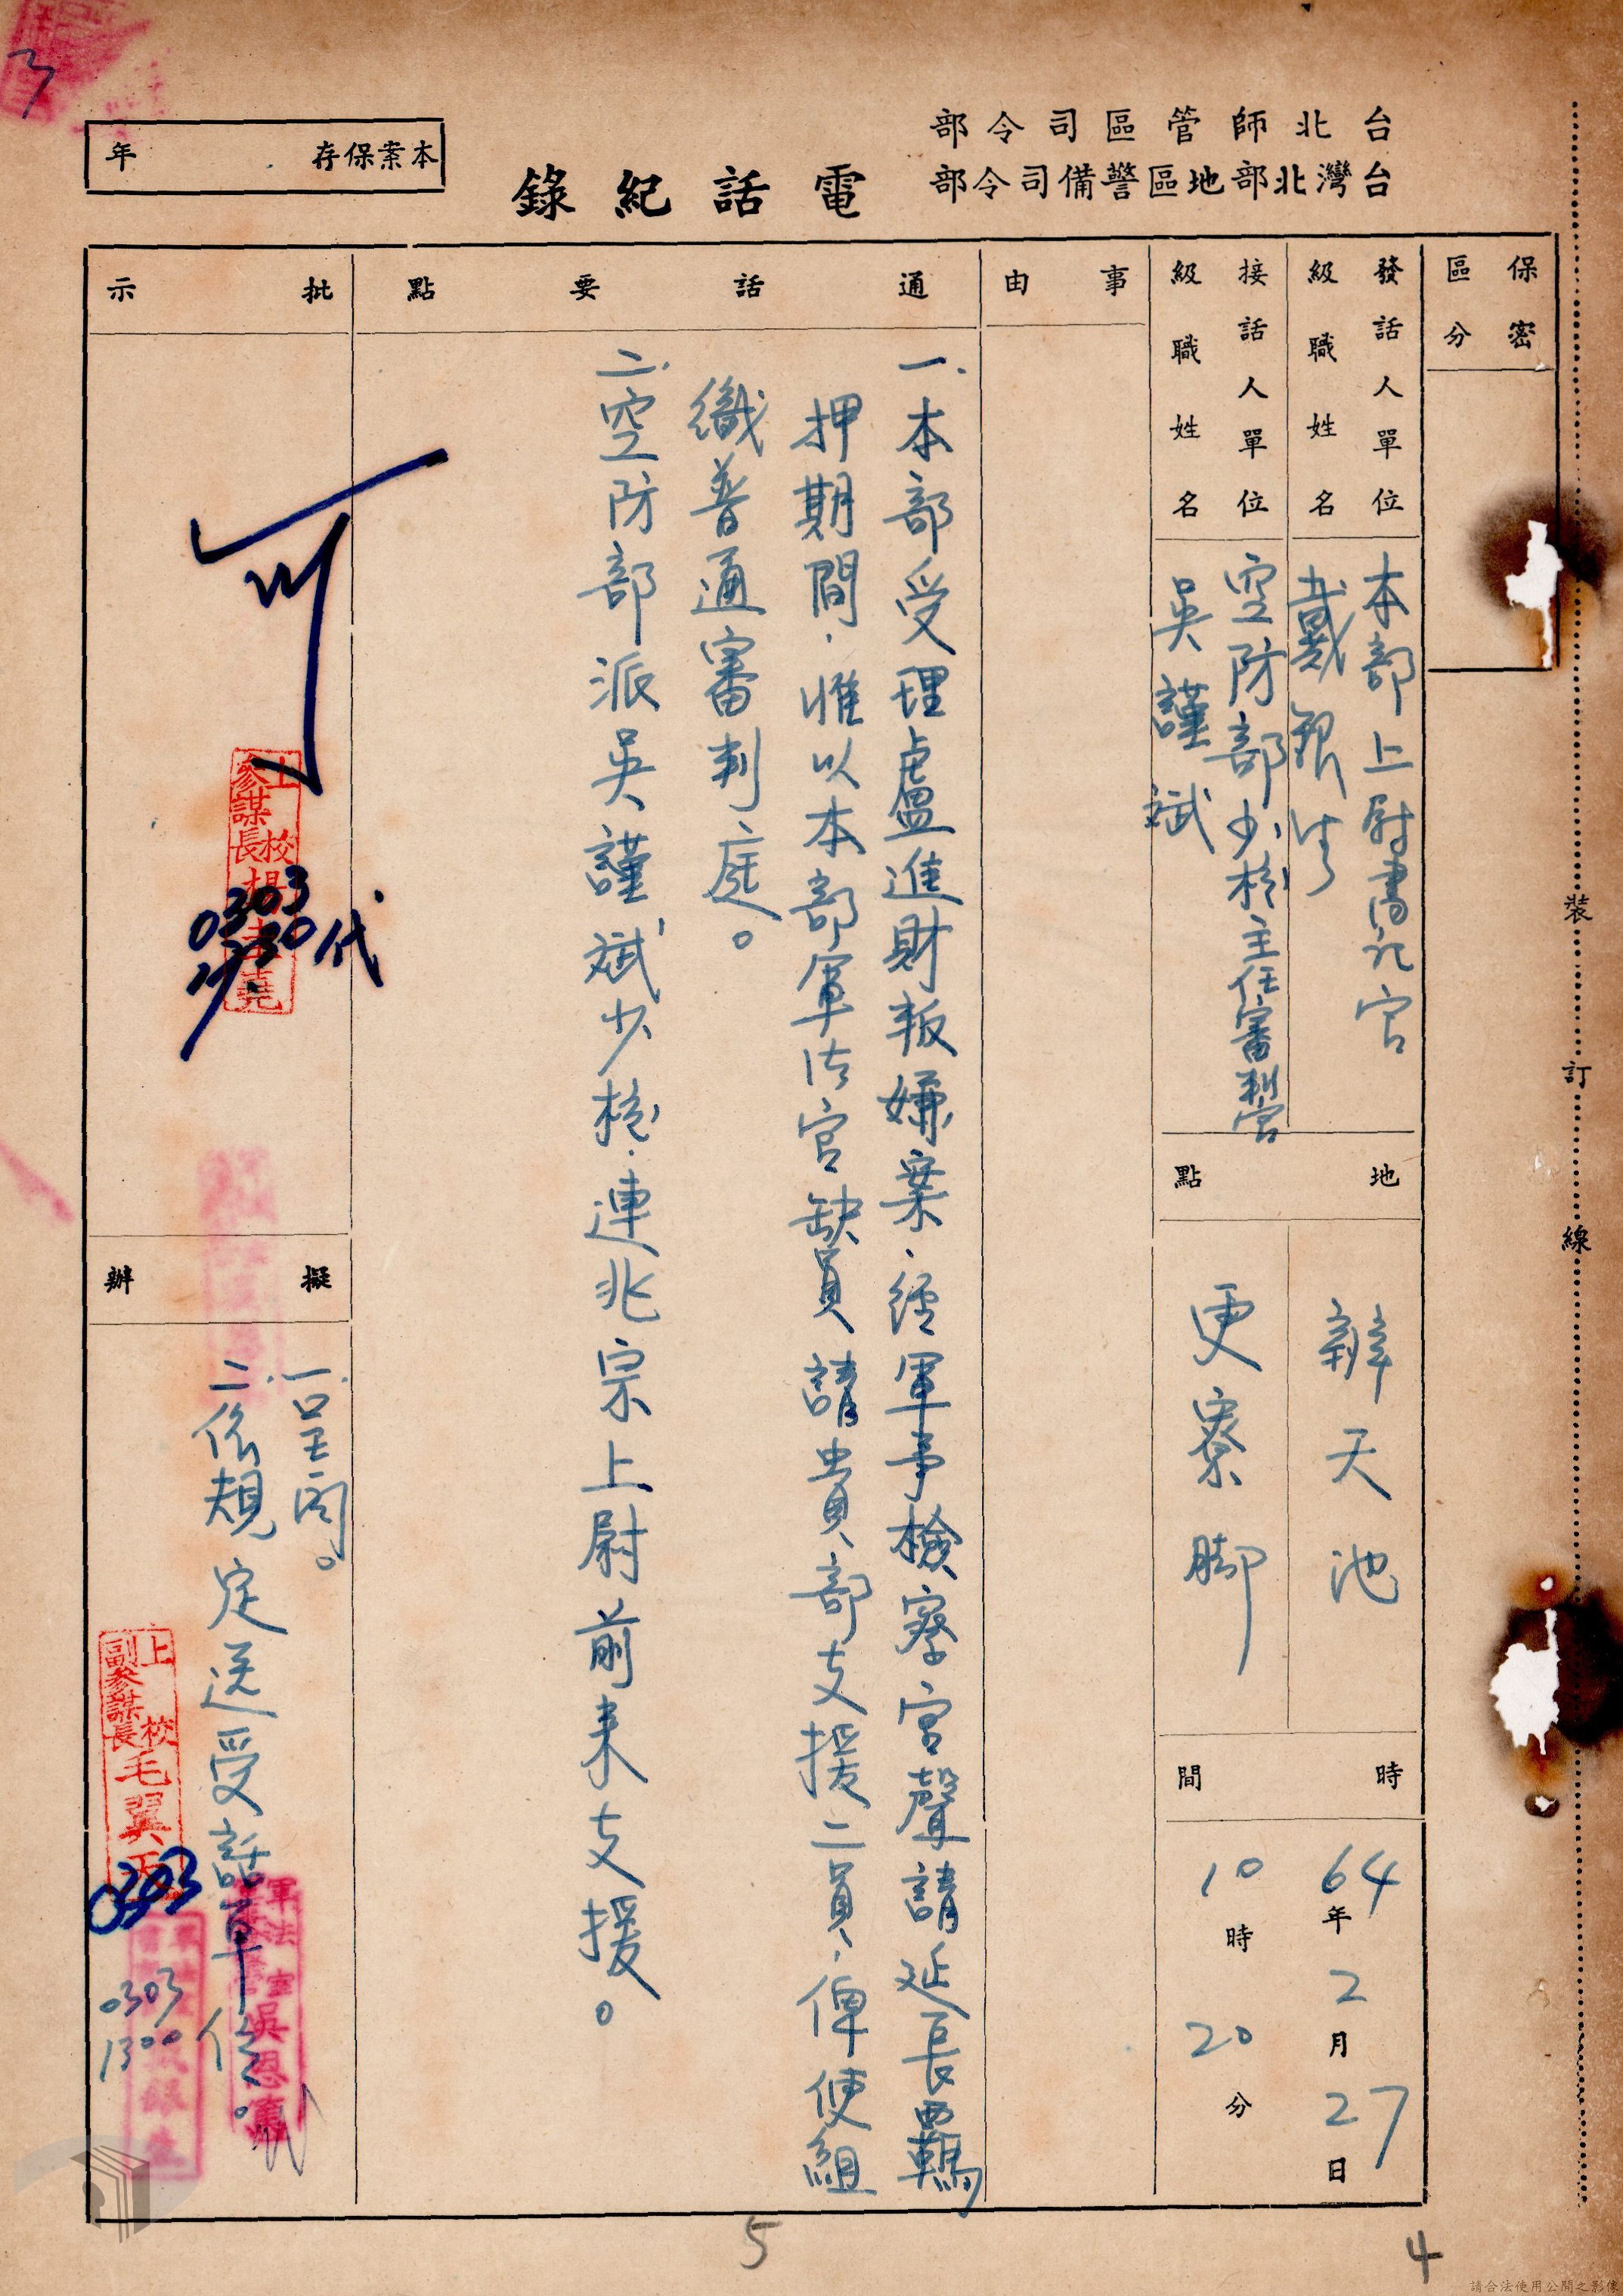 台北師管區司令部
台灣北部地區警備司令部
電話紀錄
本案保存 年
保密
區分
發話人單位
級職姓名
本部上尉書記官
戴銀生
接話人單位
級職姓名
空防部少校主任審判官
吳謹斌
地點
辦天池
更寮脚
時間
64年2月27日
10時20分
事由
通話要點
一.本部受理盧進財叛嫌案.經軍事檢察官聲請延長羈
押期間.惟以本部軍法官缺員請貴部支援二員,俾便組
織普通審判庭。
二.空防部派吳謹斌少校.連兆宗上尉前來支援。
批示
可
上校
參謀長
0303
1730代
擬辦
一.呈閱。
二.依規定送受話單位。
上校
副參謀長
毛翼天
0303
軍法室
吳恩
0303
1300
裝訂線
3
5
4
請合法使用公開之影像